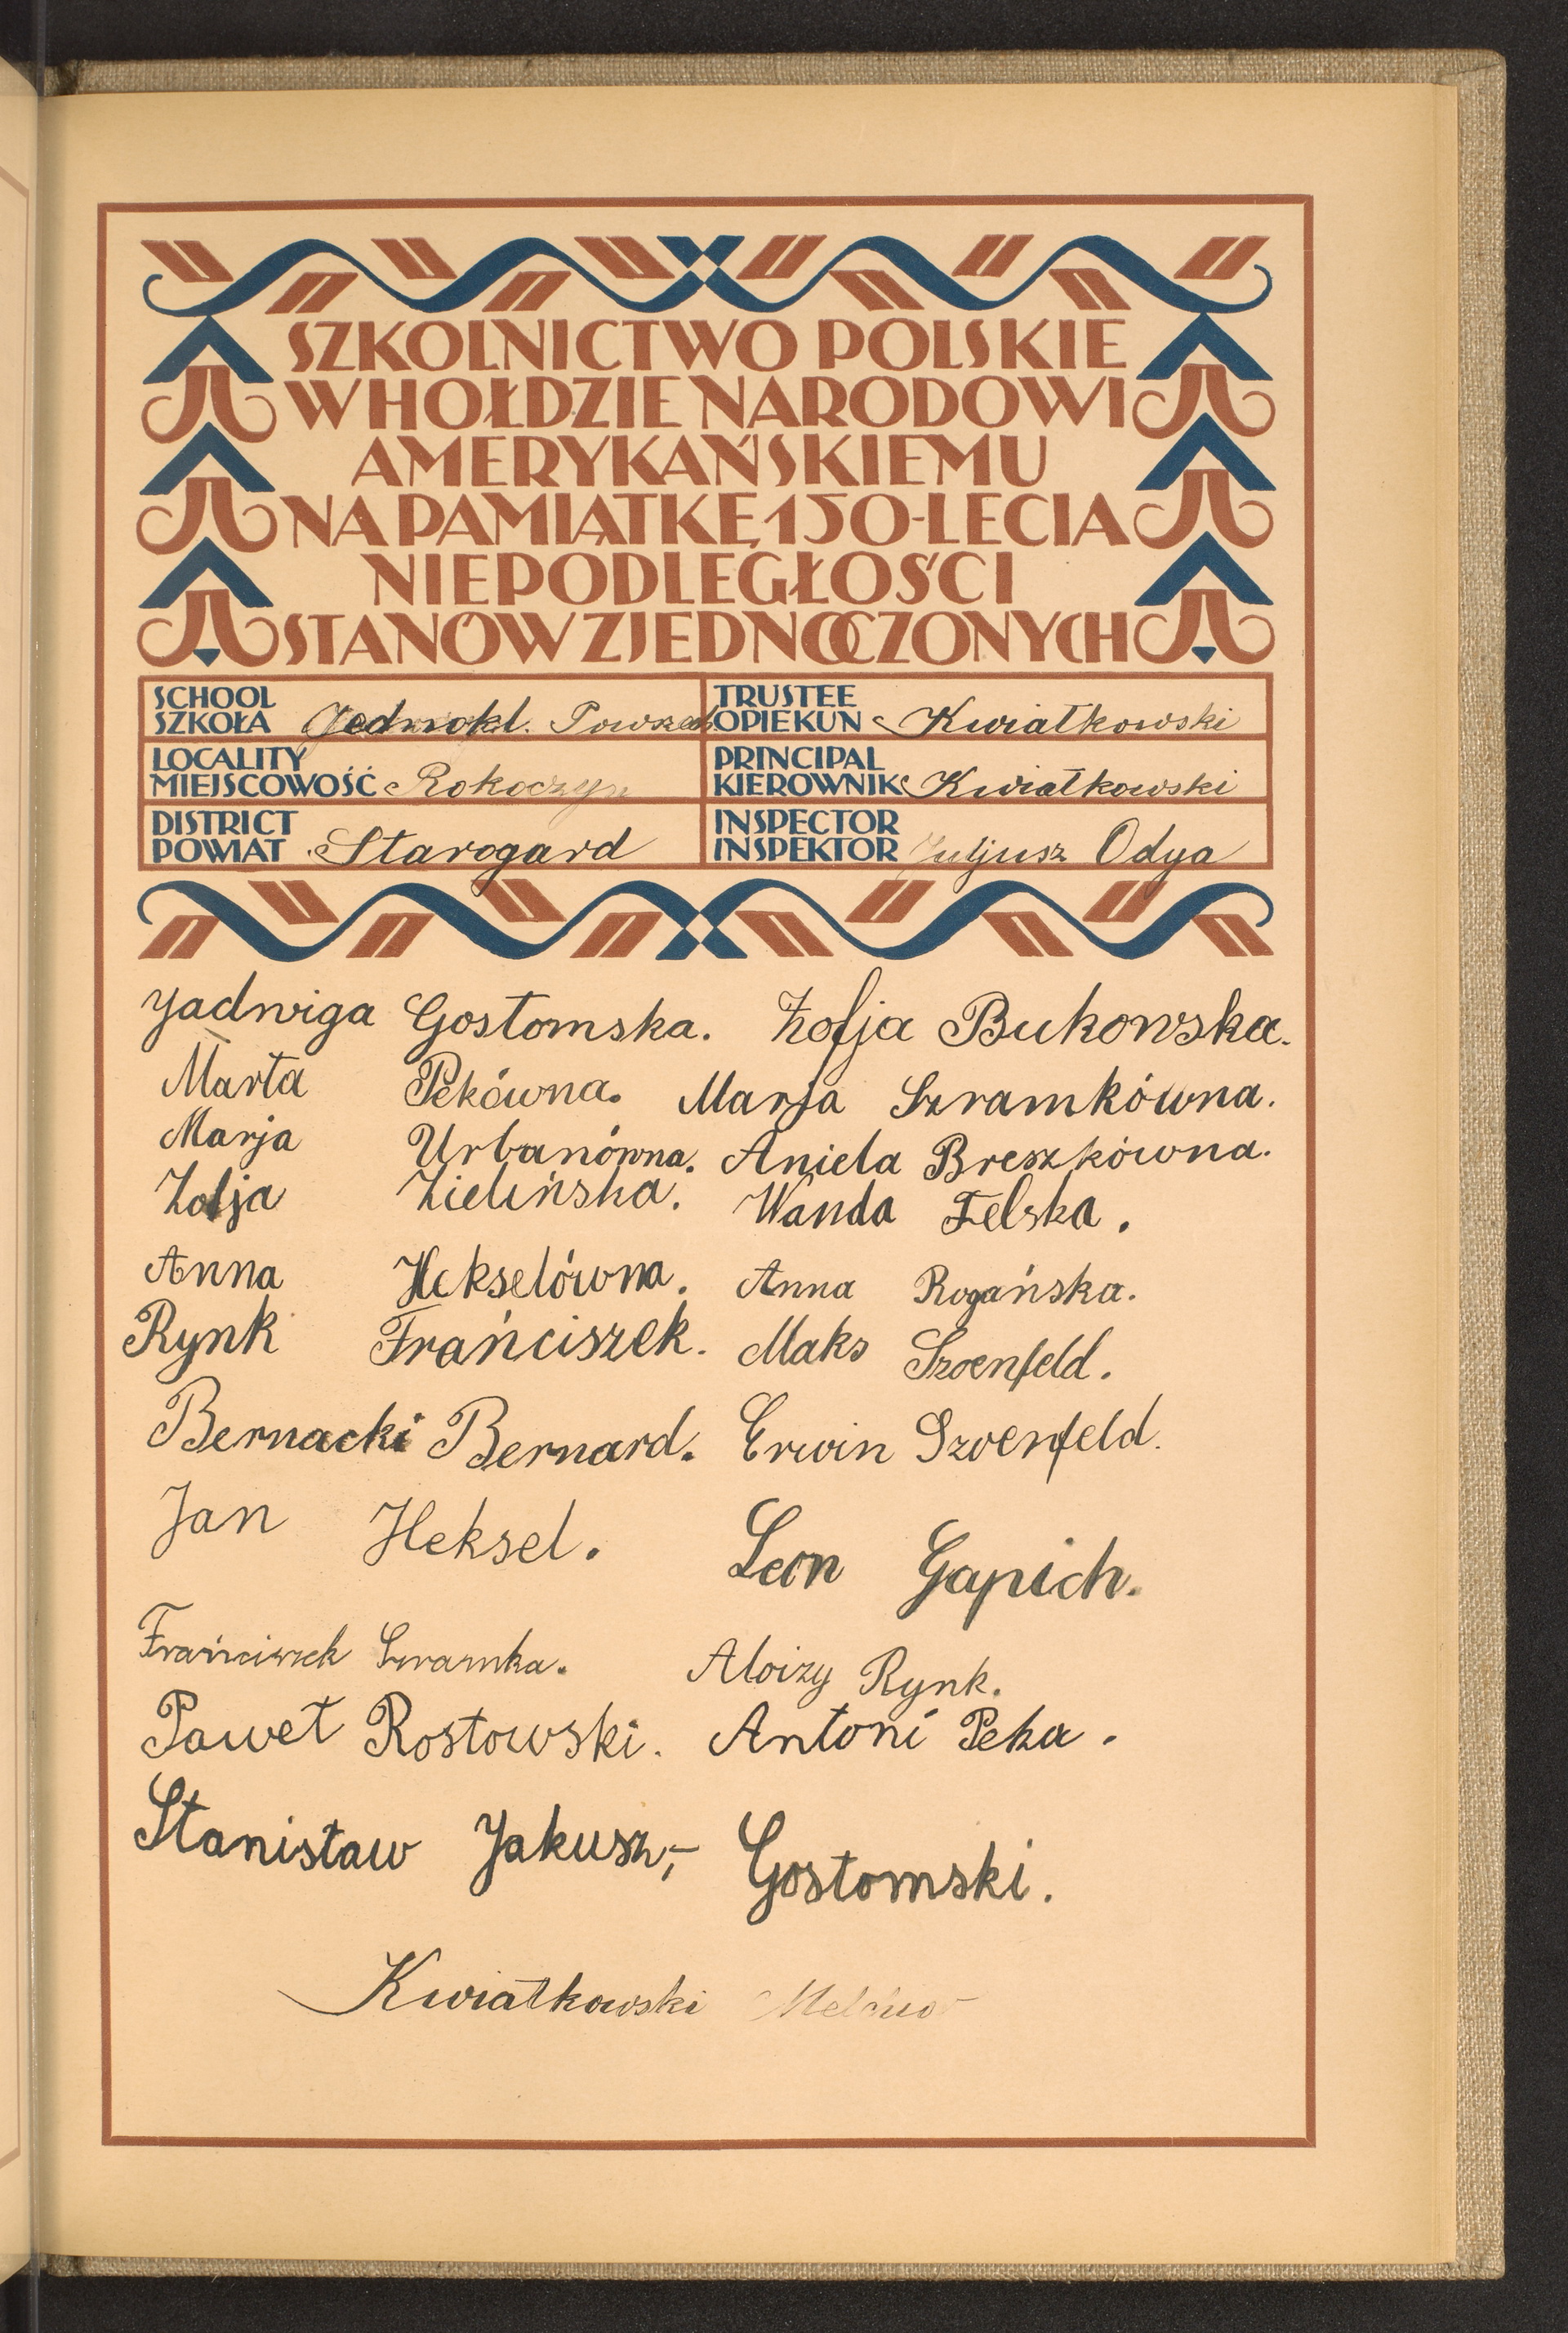 SZKOLNICTWO POLSKIE
W HOŁDZIE NARODOWI
AMERYKAŃSKIEMU
NA PAMIĄTKĘ 150-LECIA
NIEPODLEGŁOŚCI
STANÓW ZJEDNOCZONYCH
SCHOOL
SZKOŁA Jednokl. Powszech
TRUSTEE
OPIEKUN Kwiatkowski
LOCALITY
MIEJSCOWOŚĆ Rokoczyn
PRINCIPAL
KIEROWNIK Kwiatkowski
DISTRICT
POWIAT Starogard
INSPECTOR
INSPEKTOR Juljusz Odya
Jadwiga Gostomska. Zofja Bukowska.
Marta Pekówna. Marja Szramkówna.
Marja Urbanówna. Aniela Breszkówna.
Zofja Zielińska. Wanda Felska.
Anna Hekselówna. Anna Rogańska.
Rynk Frańciszek. Maks Szoenfeld.
Bernacki Bernard. Erwin Szoenfeld.
Jan Heksel. Leon Gapich.
Frańciszek Szramka. Aloizy Rynk.
Paweł Rostowski. Antoni Peka.
Stanisław Jakusz,- Gostomski.
Kwiatkowski